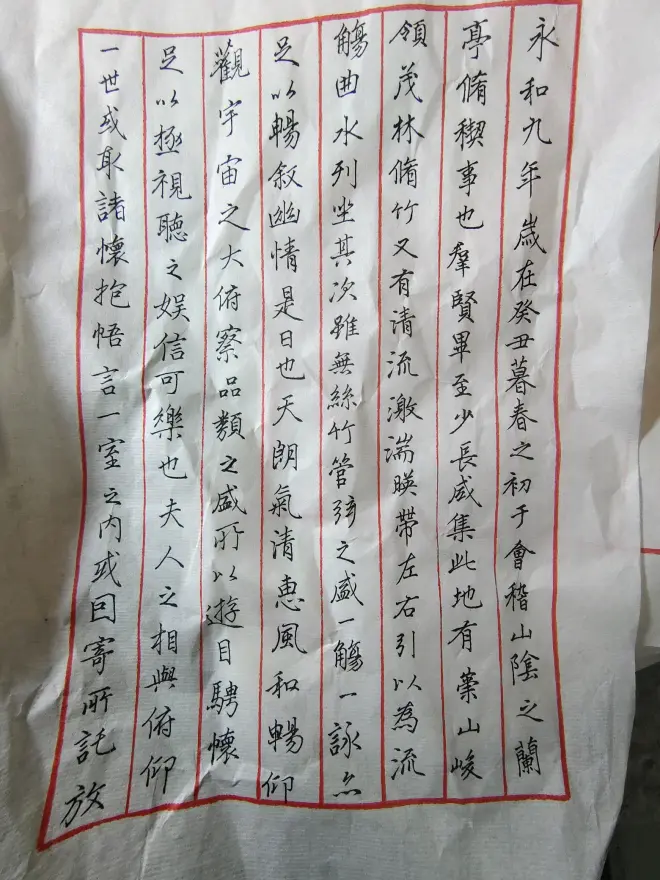 永和九年歲在癸丑暮春之初于會稽山陰之蘭
亭脩稧事也羣賢畢至少長咸集此地有崇山峻
領茂林脩竹又有清流激湍暎帶左右引以為流
觴曲水列坐其次雖無絲竹管弦之盛一觴一詠亦
足以暢敘幽情是日也天朗氣清惠風和暢仰
觀宇宙之大俯察品類之盛所以遊目騁懷
足以極視聽之娛信可樂也夫人之相與俯仰
一世或取諸懷抱悟言一室之内或因寄所託放